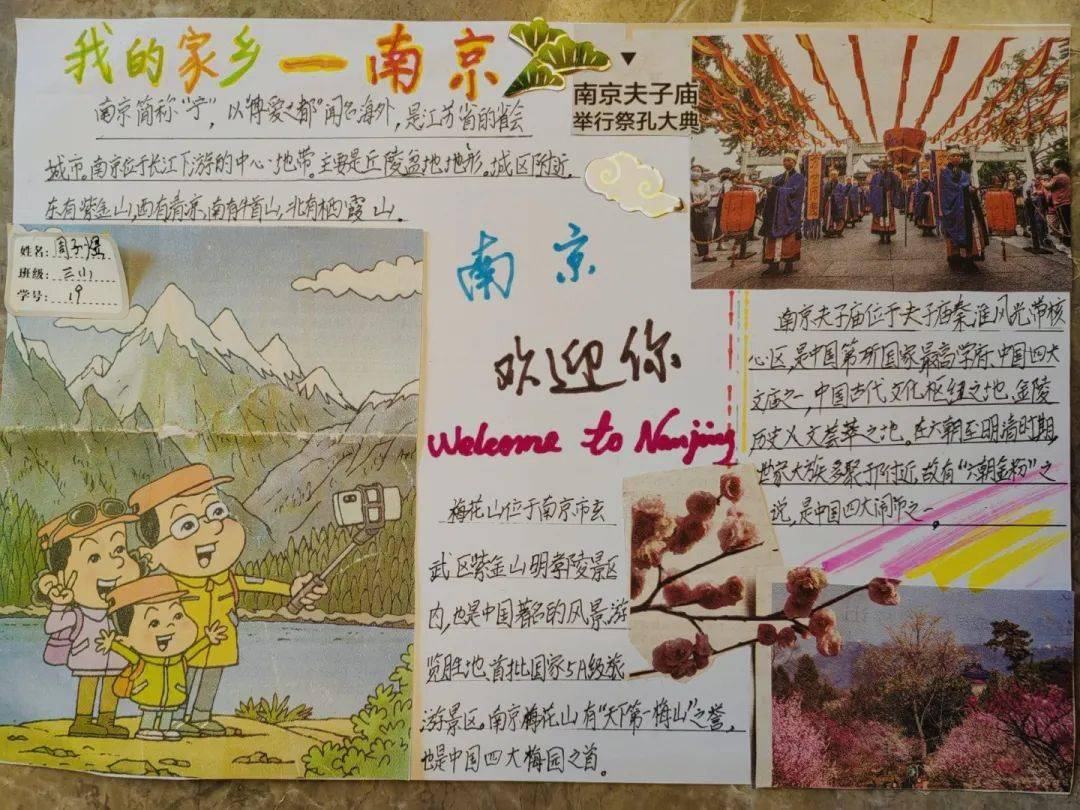 我的家乡一南京
南京简称"宁"，以"博爱之都"闻名海外，是江苏省的省会
城市。南京位于长江下游的中心地带。主要是丘陵盆地地形。城区附近
东有紫金山，西有清凉，南有牛首山，北有栖霞山。
南京夫子庙
举行祭孔大典
姓名：周子
班级：三(1)
学号：19
南京
欢迎你
Welcome to Nanjing
南京夫子庙位于夫子庙秦淮风光带核
心区，是中国第一所国家最高学府、中国四大
文庙之一，中国古代文化枢纽之地、金陵
历史人文荟萃之地。在六朝至明清时期，
世家大族多聚于附近，故有"六朝金粉"之
说，是中国四大闹市之一。
梅花山位于南京市玄
武区紫金山明孝陵景区
内，也是中国著名的风景游
览胜地、首批国家5A级旅
游景区。南京梅花山有"天下第一梅山"之誉，
也是中国四大梅园之首。